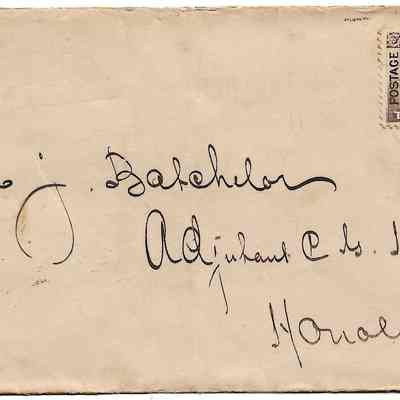 POSTAGE
J. Batchelor
Adjutant C. G.
Honol